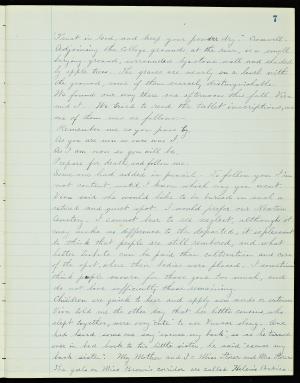 7
"Trust in God, and keep your powder dry." Cromwell.
Adjoining the College grounds at the rear, is a small
burying ground, surrounded by stone wall and shaded
by apple trees. The graves are nearly on a level with
the ground, some of them scarcely distinguishable.
We found our way there one afternoon this fall. Vera
and I. We tried to read the tablet inscriptions, and
one of them was as follows:-
Remember me as you pass by
As you are now so once was I
As I am now so you will be
Prepare for death, and follow me.
Some one had added in pencil - To follow you I'm
not content, until I know which way you went.
Vera said she would like to be buried in such a
retired and quiet spot. I would prefer our
Cemetery. I cannot bear to see neglect, although it
may make no difference to the departed, it is pleasant
to think that people are still remembered, and what
better tribute can be paid than cultivation and care
of the spot where their bodies were placed. I sometimes
think people mourn for those gone too much, and
do not love sufficiently those remaining.
Children are quick to hear and apply new words or
Vera told me the other day, that her little cousins, who
slept together, were very
had heard some one say "excuse my back" so as he turned
over in bed back to the little sister, he said "excuse my
back sister". My Mother and I - Miss and Mrs
The girls on Miss Brown's corridor are called Helen's